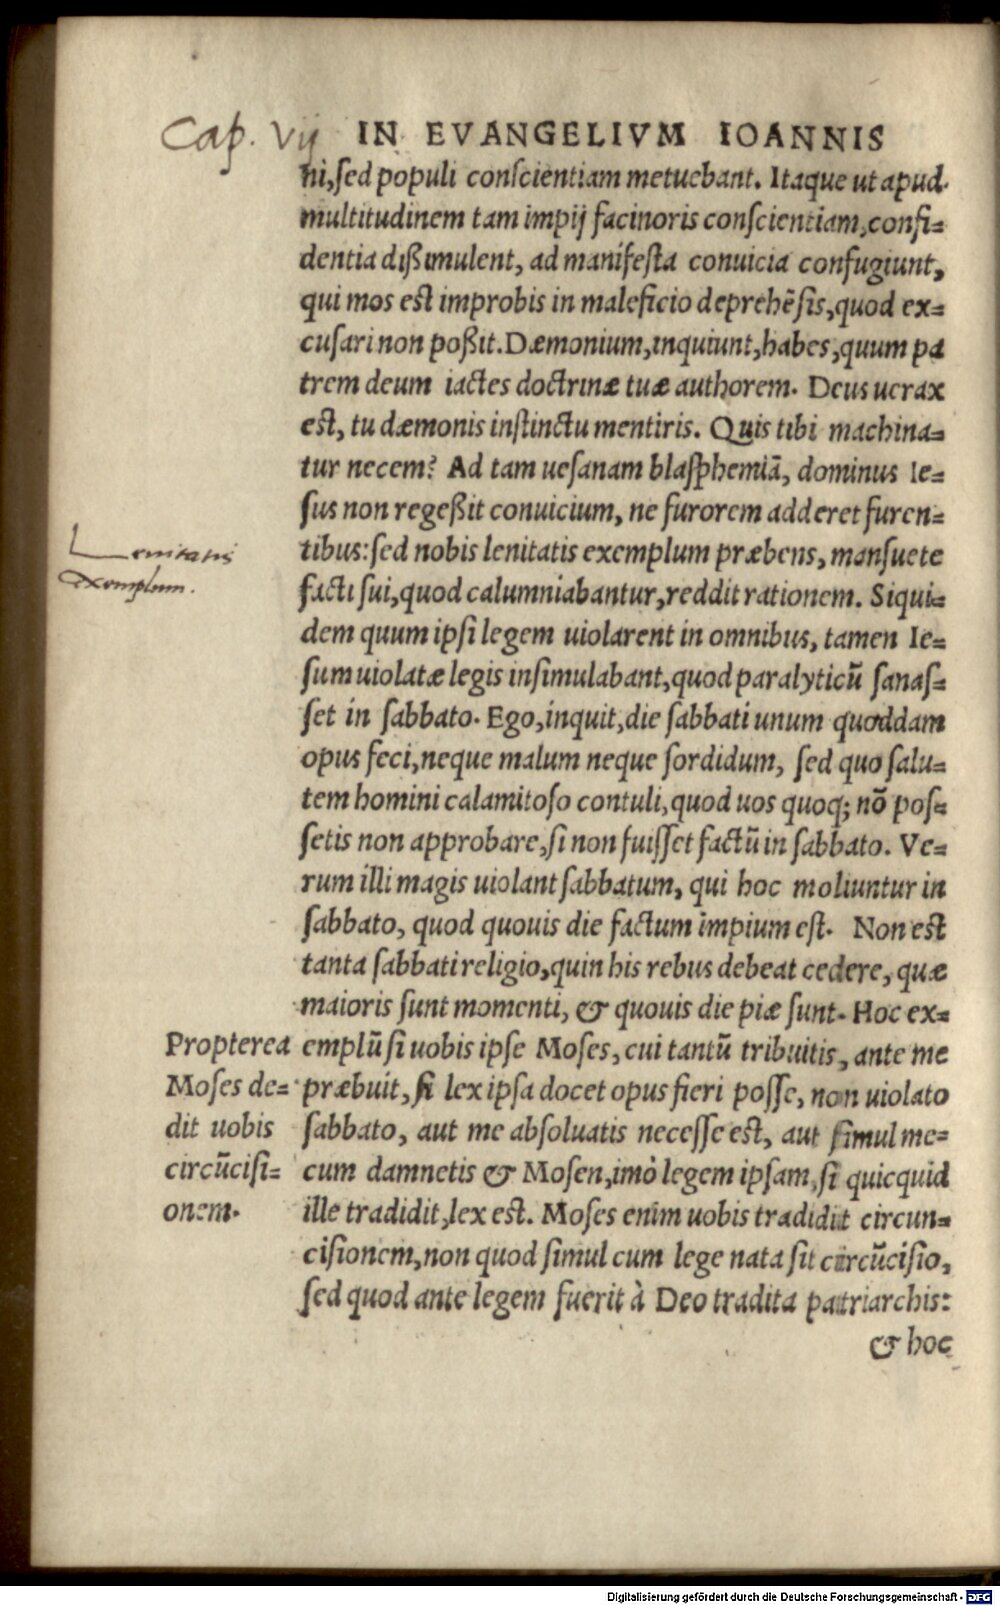 Cap. Vij IN EVANGELIVM IOANNIS
ni, sed populi conscientiam metuebant. Itaque ut apud
multitudinem tam impij facinoris conscientiam, confi=
dentia dißimulent, ad manifesta conuicia confugiunt,
qui mos est improbis in maleficio deprehẽsis, quod ex=
cusari non poßit. Dæmonium, inquiunt, habes, quum pa
trem deum iactes doctrinæ tuæ authorem. Deus uerax
est, tu dæmonis instinctu mentiris. Quis tibi machina=
tur necem? Ad tam uesanam blasphemiã, dominus Ie=
sus non regeßit conuicium, ne furorem adderet furen=
Lenitatis
tibus: sed nobis lenitatis exemplum præbens, mansuete
exemplum.
facti sui, quod calumniabantur, reddit rationem. Siqui=
dem quum ipsi legem uiolarent in omnibus, tamen Ie=
sum uiolatæ legis insimulabant, quod paralyticũ sanas=
set in sabbato. Ego, inquit, die sabbati unum quoddam
opus feci, neque malum neque sordidum, sed quo salu=
tem homini calamitoso contuli, quod uos quoq; nõ pos=
setis non approbare, si non fuisset factũ in sabbato. Ve=
rum illi magis uiolant sabbatum, qui hoc moliuntur in
sabbato, quod quouis die factum impium est. Non est
tanta sabbati religio, quin his rebus debeat cedere, quæ
maioris sunt momenti, & quouis die piæ sunt. Hoc ex=
Propterea
emplũ si uobis ipse Moses, cui tantũ tribuitis, ante me
Moses de=
præbuit, si lex ipsa docet opus fieri posse, non uiolato
dit uobis
sabbato, aut me absoluatis necesse est, aut simul me=
circũcisi=
cum damnetis & Mosen, imò legem ipsam, si quicquid
onem.
ille tradidit, lex est. Moses enim uobis tradidit circun=
cisionem, non quod simul cum lege nata sit circũcisio,
sed quod ante legem fuerit à Deo tradita patriarchis:
& hoc
Digitalisierung gefördert durch die Deutsche Forschungsgemeinschaft - DFG